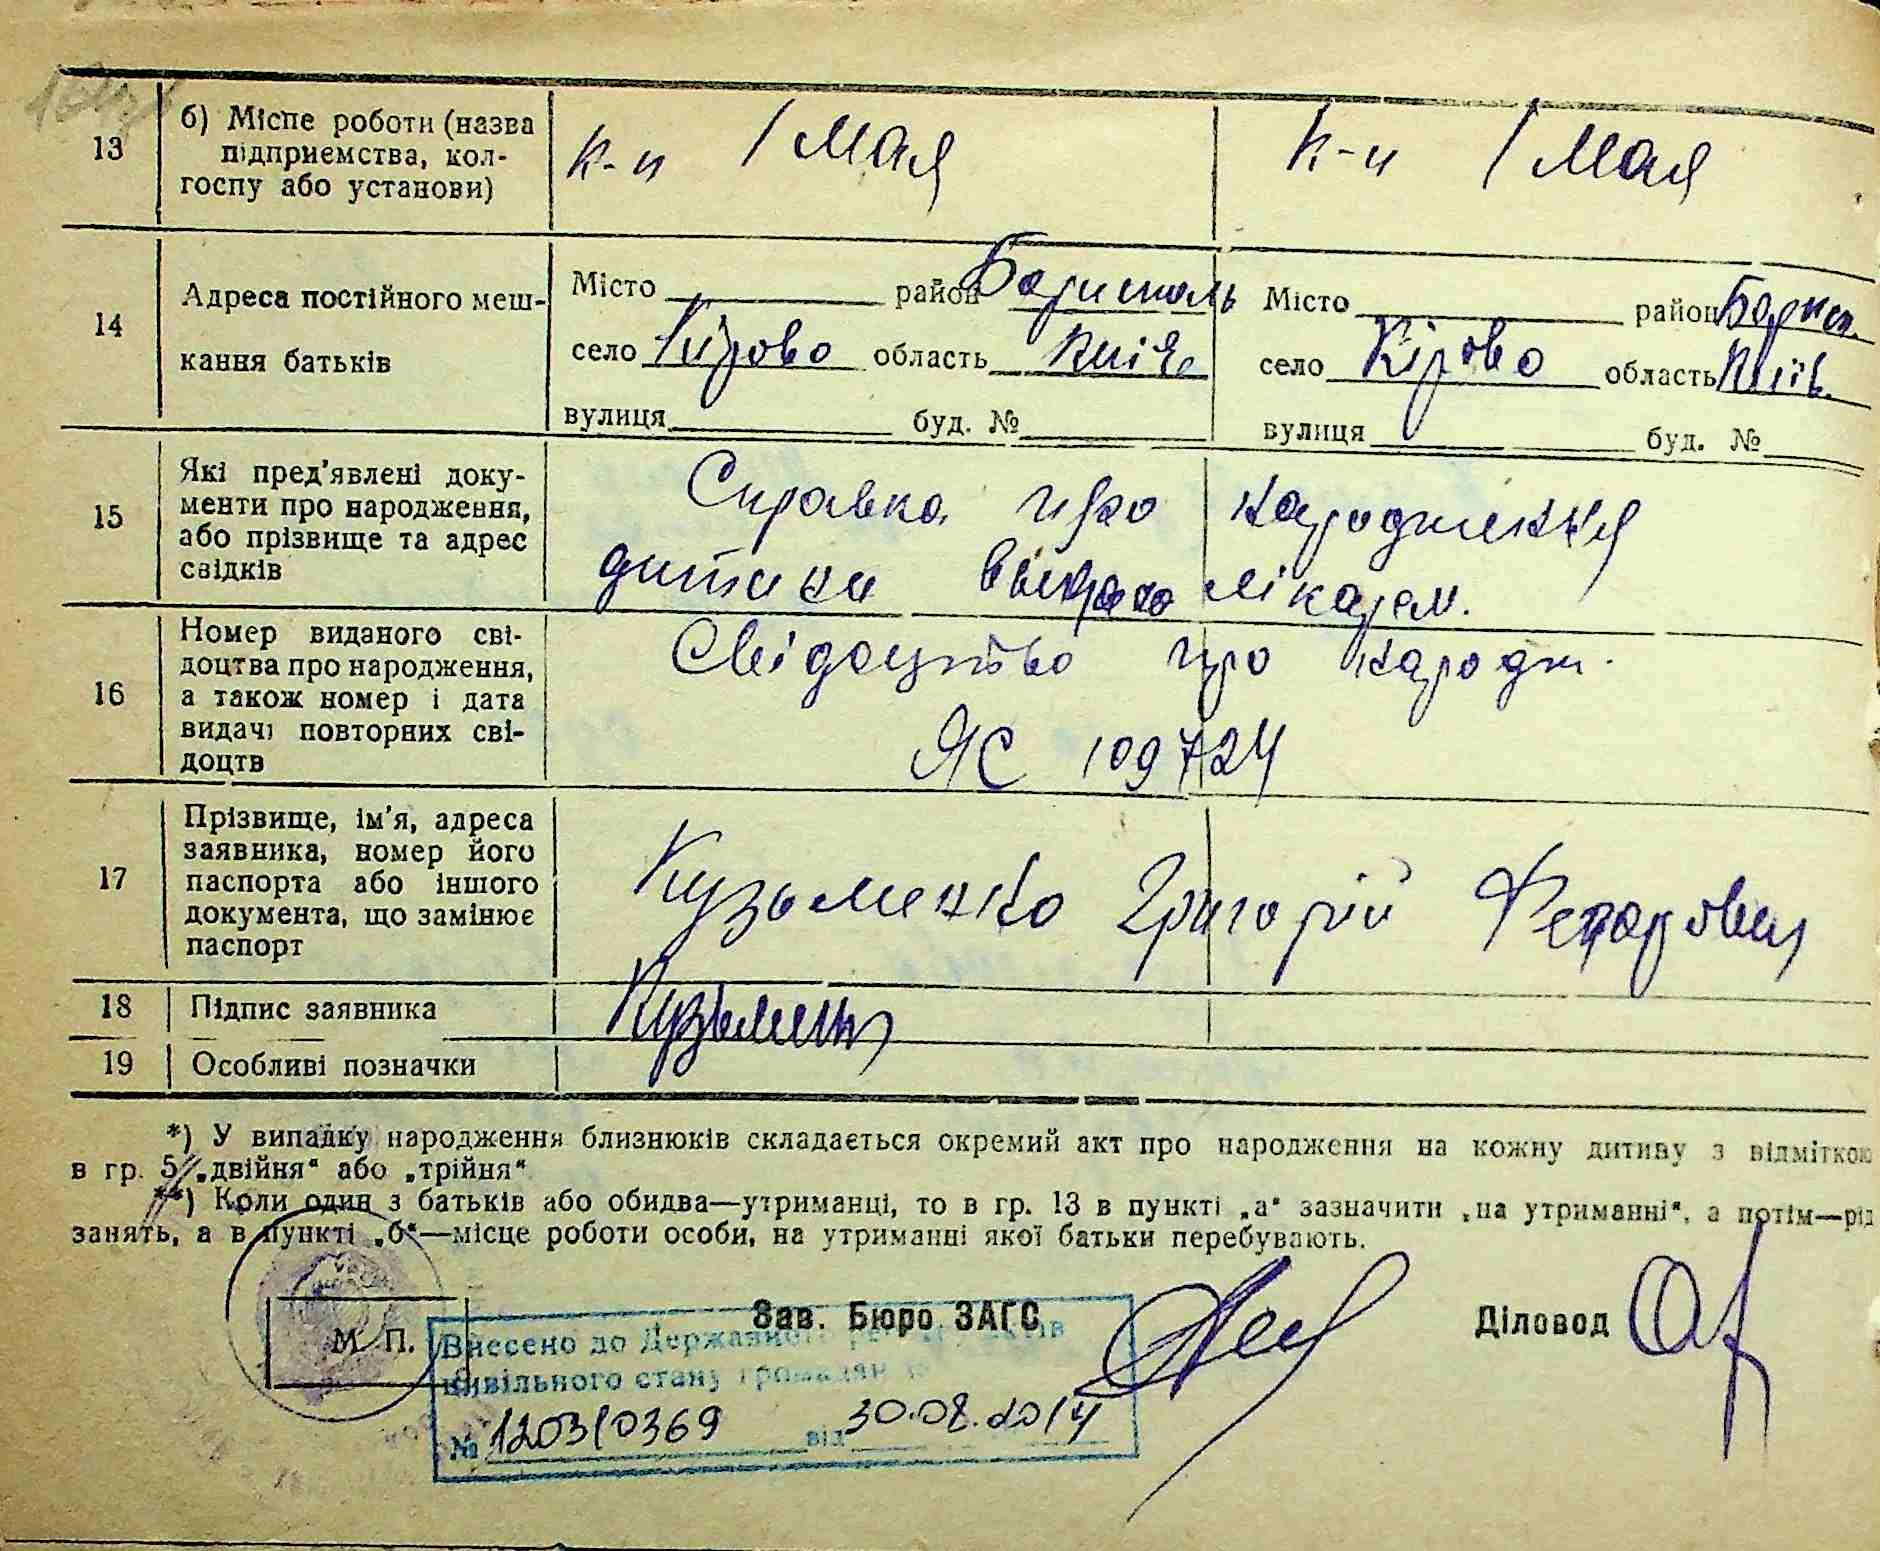 13 б) Місце роботи (назва підприємства, колгоспу або установи) к-п 1 Мая к-п 1 Мая
14 Адреса постійного мешкання батьків
Місто район Бориспіль Місто район Борисп.
село Кірово область Київ. село Кірово область Київ.
вулиця буд. № вулиця буд. №
15 Які пред'явлені документи про народження, або прізвище та адрес свідків
Справка про народження
дитини лікарем.
16 Номер виданого свідоцтва про народження, а також номер і дата видачі повторних свідоцтв
Свідоцтво про народж.
ЯС 109724
17 Прізвище, ім'я, адреса заявника, номер його паспорта або іншого документа, що замінює паспорт
Кузьменко Григорій Федорович
18 Підпис заявника Кузьменко
19 Особливі позначки
*) У випадку народження близнюків складається окремий акт про народження на кожну дитину з відміткою
в гр. 5 „двійня“ або „трійня“
**) Коли один з батьків або обидва—утриманці, то в гр. 13 в пункті „а“ зазначити „на утриманні“, а потім—рід
занять, а в пункті „б“—місце роботи особи, на утриманні якої батьки перебувають.
Зав. Бюро ЗАГС Діловод
М. П.
Внесено до Державного реєстру актів
цивільного стану громадян за
№ 120310369 від 30.08.2014